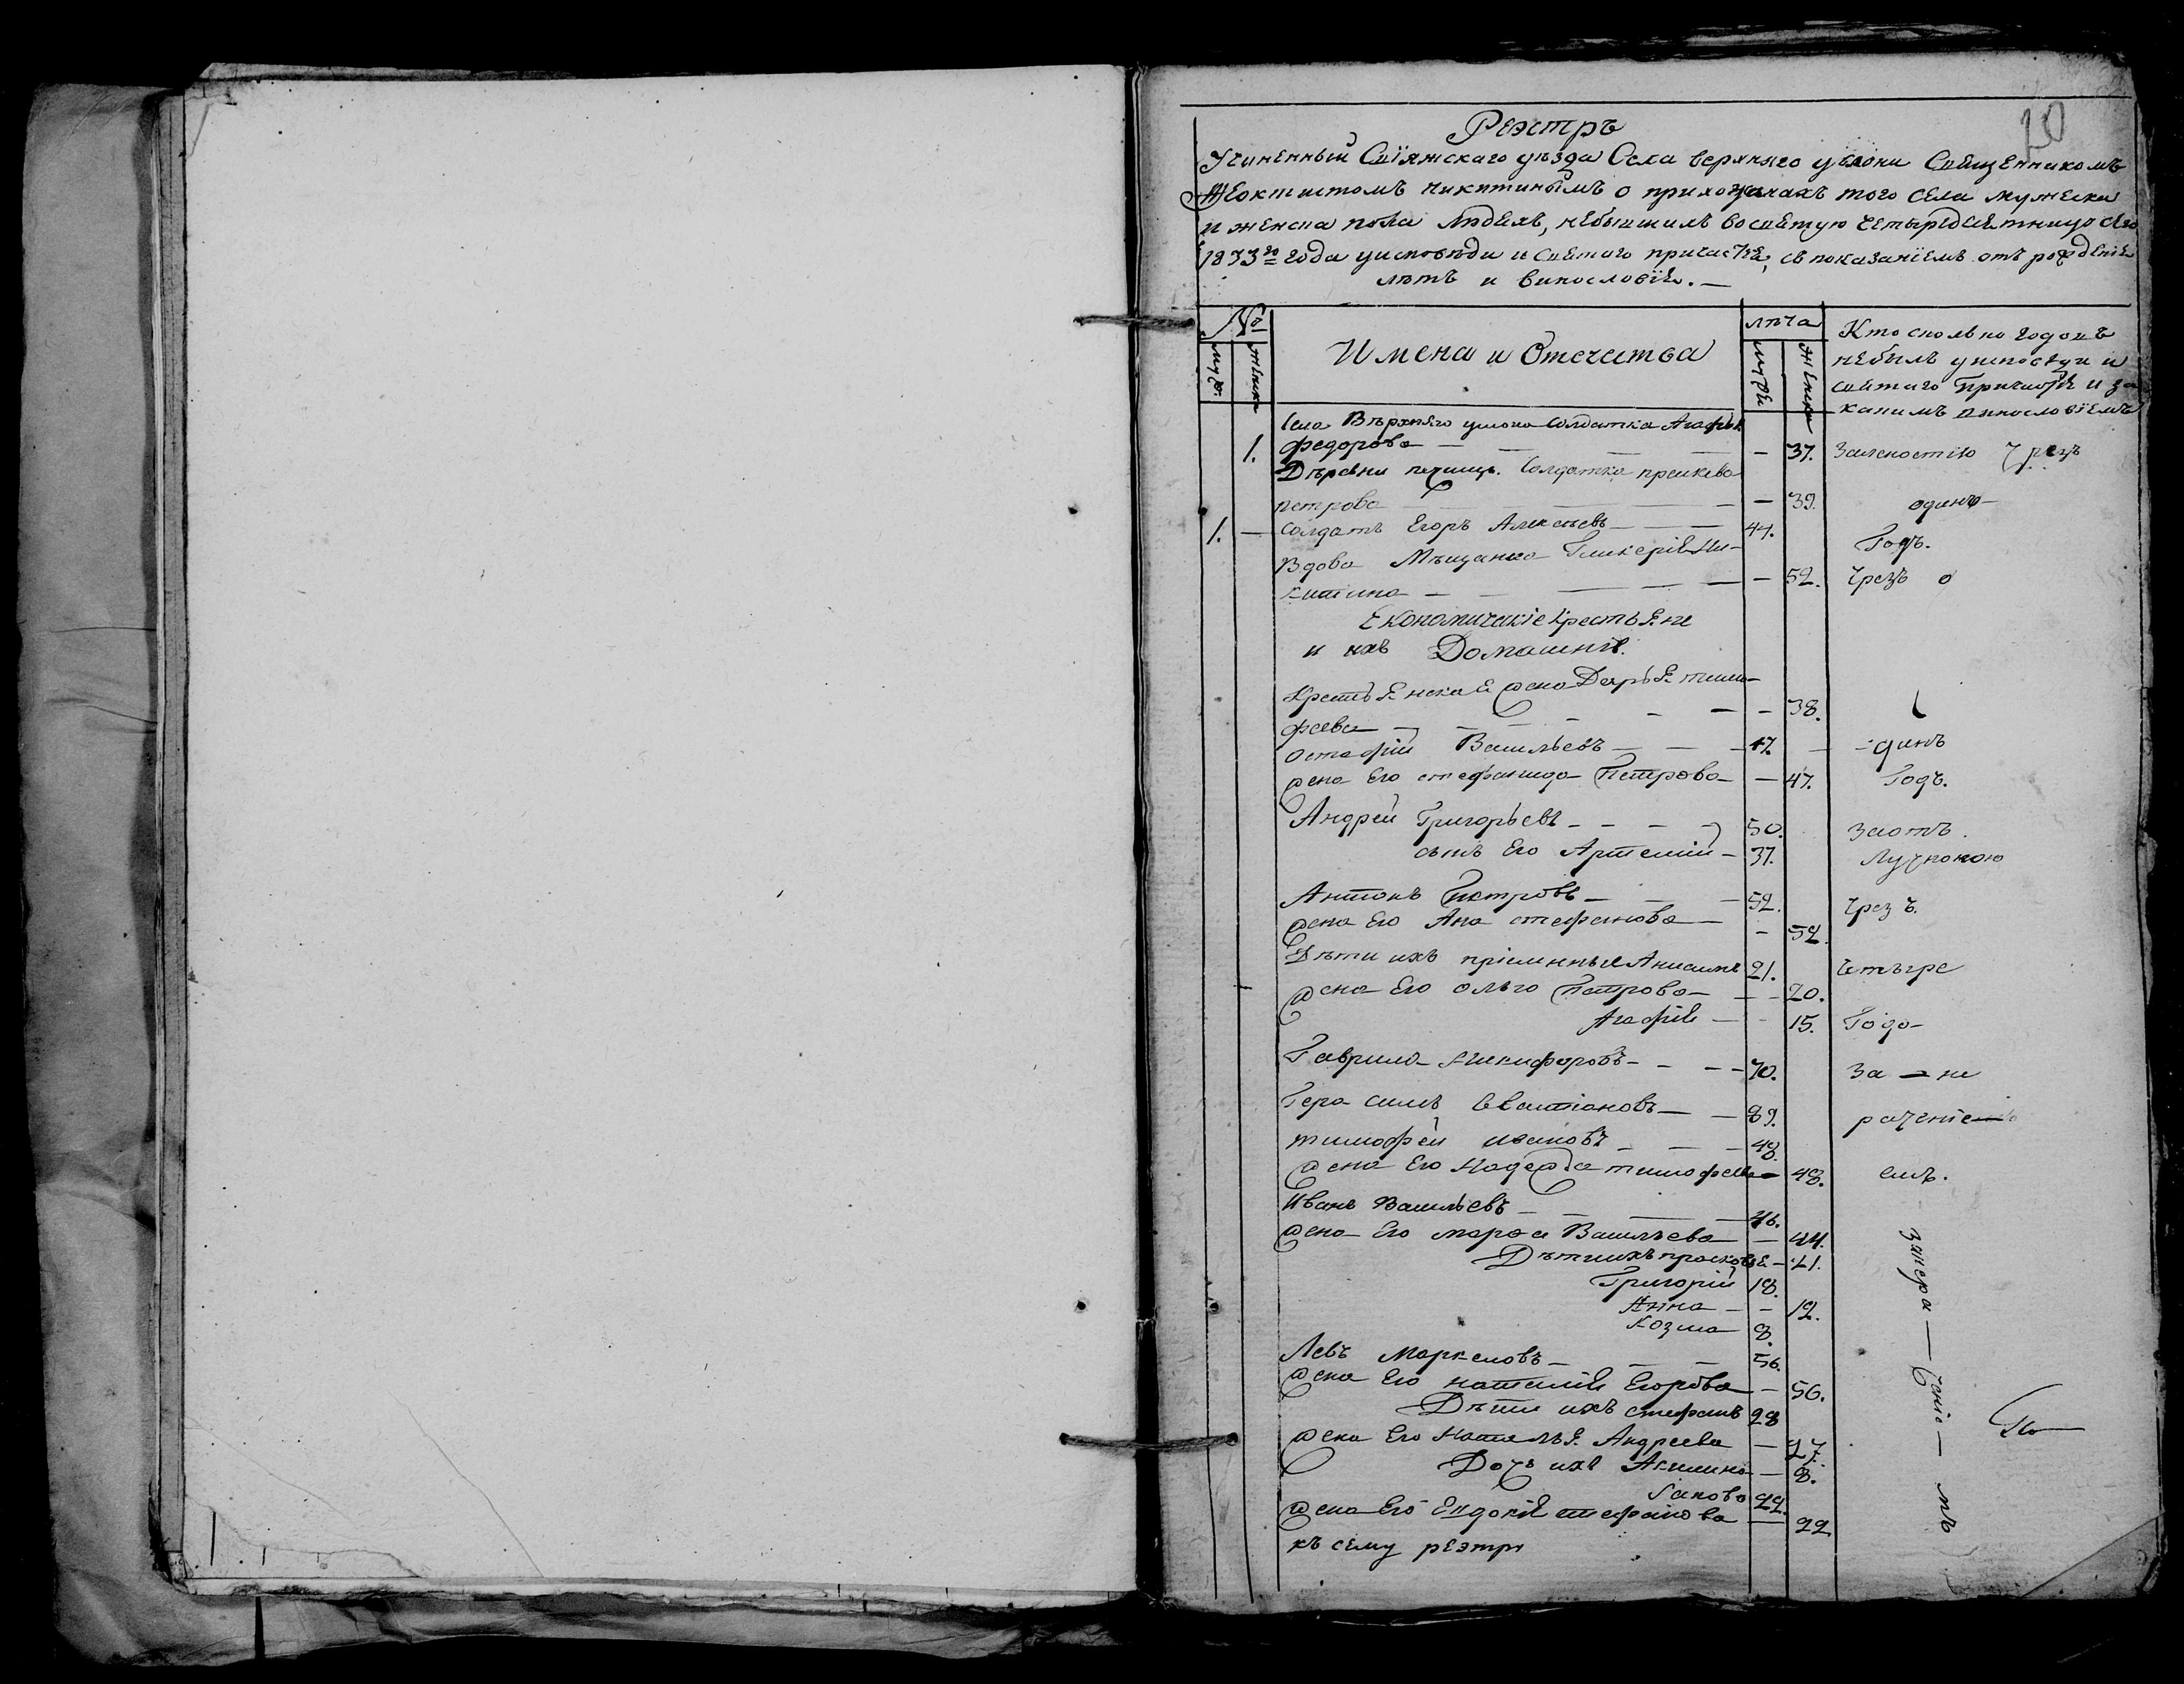 20
Реэстръ
Учиненный Свіяжскаго уѣзда Села верхняго услона Священникомъ
Ѳеоктистомъ Никитинымъ о прихожанахъ того села мужеска
и женска пола людехъ, небывшихъ восвятую четыредесятницу сего
1833го года уисповѣди и святаго причастія, съ показаніемъ отъ рожденія
лѣтъ и винословія.—
№ лѣта
Имена и Отечества
муж. женска мужес женска
Кто сколько годовъ
небылъ уисповѣди и
святаго Причастія и за
какимъ винословіемъ
Села Вѣрхняго услона Солдатка Агафья
1. федорова — — 37. Заленостію чрезъ
Дѣревни печищь. Солдатка праскева
петрова — — 39. одинъ
1. — Солдатъ Егоръ Алексѣевъ — — 44. Годъ.
Вдова Мѣщанка Гликерія Ни-
китина — — 52. Чрезъ о
Економическіе Крестьяне
и ихъ Домашніе.
Крестьянская жена Дарья тимо-
феева — — 38.
Остафій Васильевъ — — 47. — динъ
жена Его стефанида Петрова — 47. Годъ.
Андрей Григорьевъ — — 50. Заотъ.
сынъ Его Артемій — 37. Лучкою
Антонъ Петровъ — — 52. Чрезъ.
жена Его Ана стефанова — — 52.
Дѣти ихъ пріемныя Анисимъ 21. Четыре
жена Его ольга Петрова — — 20.
Агафія — 15. Года
Гаврила Никифоровъ — — 70. За — не
Герасимъ Савастіановъ — — 89. раченіе
тимофей ивановъ — — 48.
жена Его Надежда тимофеева — 48. емъ.
Иванъ Васильевъ — — 46.
жена Его марфа Васильева — 44.
Дѣти ихъ прасковья — 21.
Григорій 18.
Анна — — 12.
Козма 8.
Левъ Маркеловъ — — 56.
жена Его наталія Егорова — 56.
Дѣти ихъ стефанъ 28
жена Его Наталья Андреева — 27.
Дочь ихъ Акилина — 8.
Іаковъ 22.
жена Его Евдокія стефанова — 22
къ сему реэтру